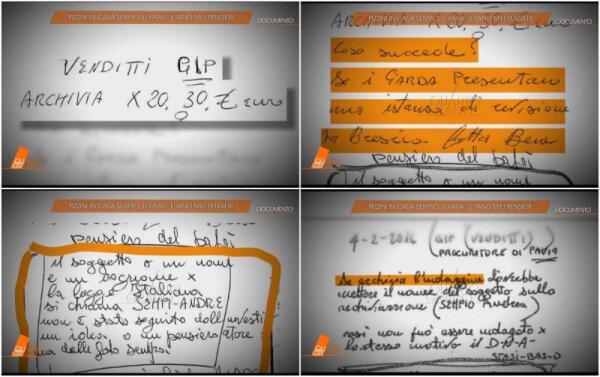 PIZZINI IN CASA SEMPIO, IL PAPA': "ERANO MIEI PENSIERI"
DOCUMENTO
VENDITTI GIP
ARCHIVIA X 20. 30. € euro
PIZZINI IN CASA SEMPIO, IL PAPA': "ERANO MIEI PENSIERI"
DOCUMENTO
ARCHIVIA X 20. 30. € euro
Cosa succede?
Se i GARDA Presentano
una istanza di revisione
a Brescia fatta Bene
pensiero del babi
il soggetto a un nome
PIZZINI IN CASA SEMPIO, IL PAPA': "ERANO MIEI PENSIERI"
DOCUMENTO
pensiero del babi
il soggetto a un nome
e un cognome x
la legge Italiana
si chiama SEMPI-ANDRE
non è stato seguito dall
un idea, o un pensiero
PIZZINI IN CASA SEMPIO, IL PAPA': "ERANO MIEI PENSIERI"
DOCUMENTO
4-2-2016 (GIP (VENDITTI)
PROCURATORE DI PAVIA
Se archivia l'indagine dovrebbe
mettere il nome del soggetto sulla
(SEMPIO Andrea)
cosi non può essere indagato x
lo stesso motivo il D-N-A-
STASI-BAS-D